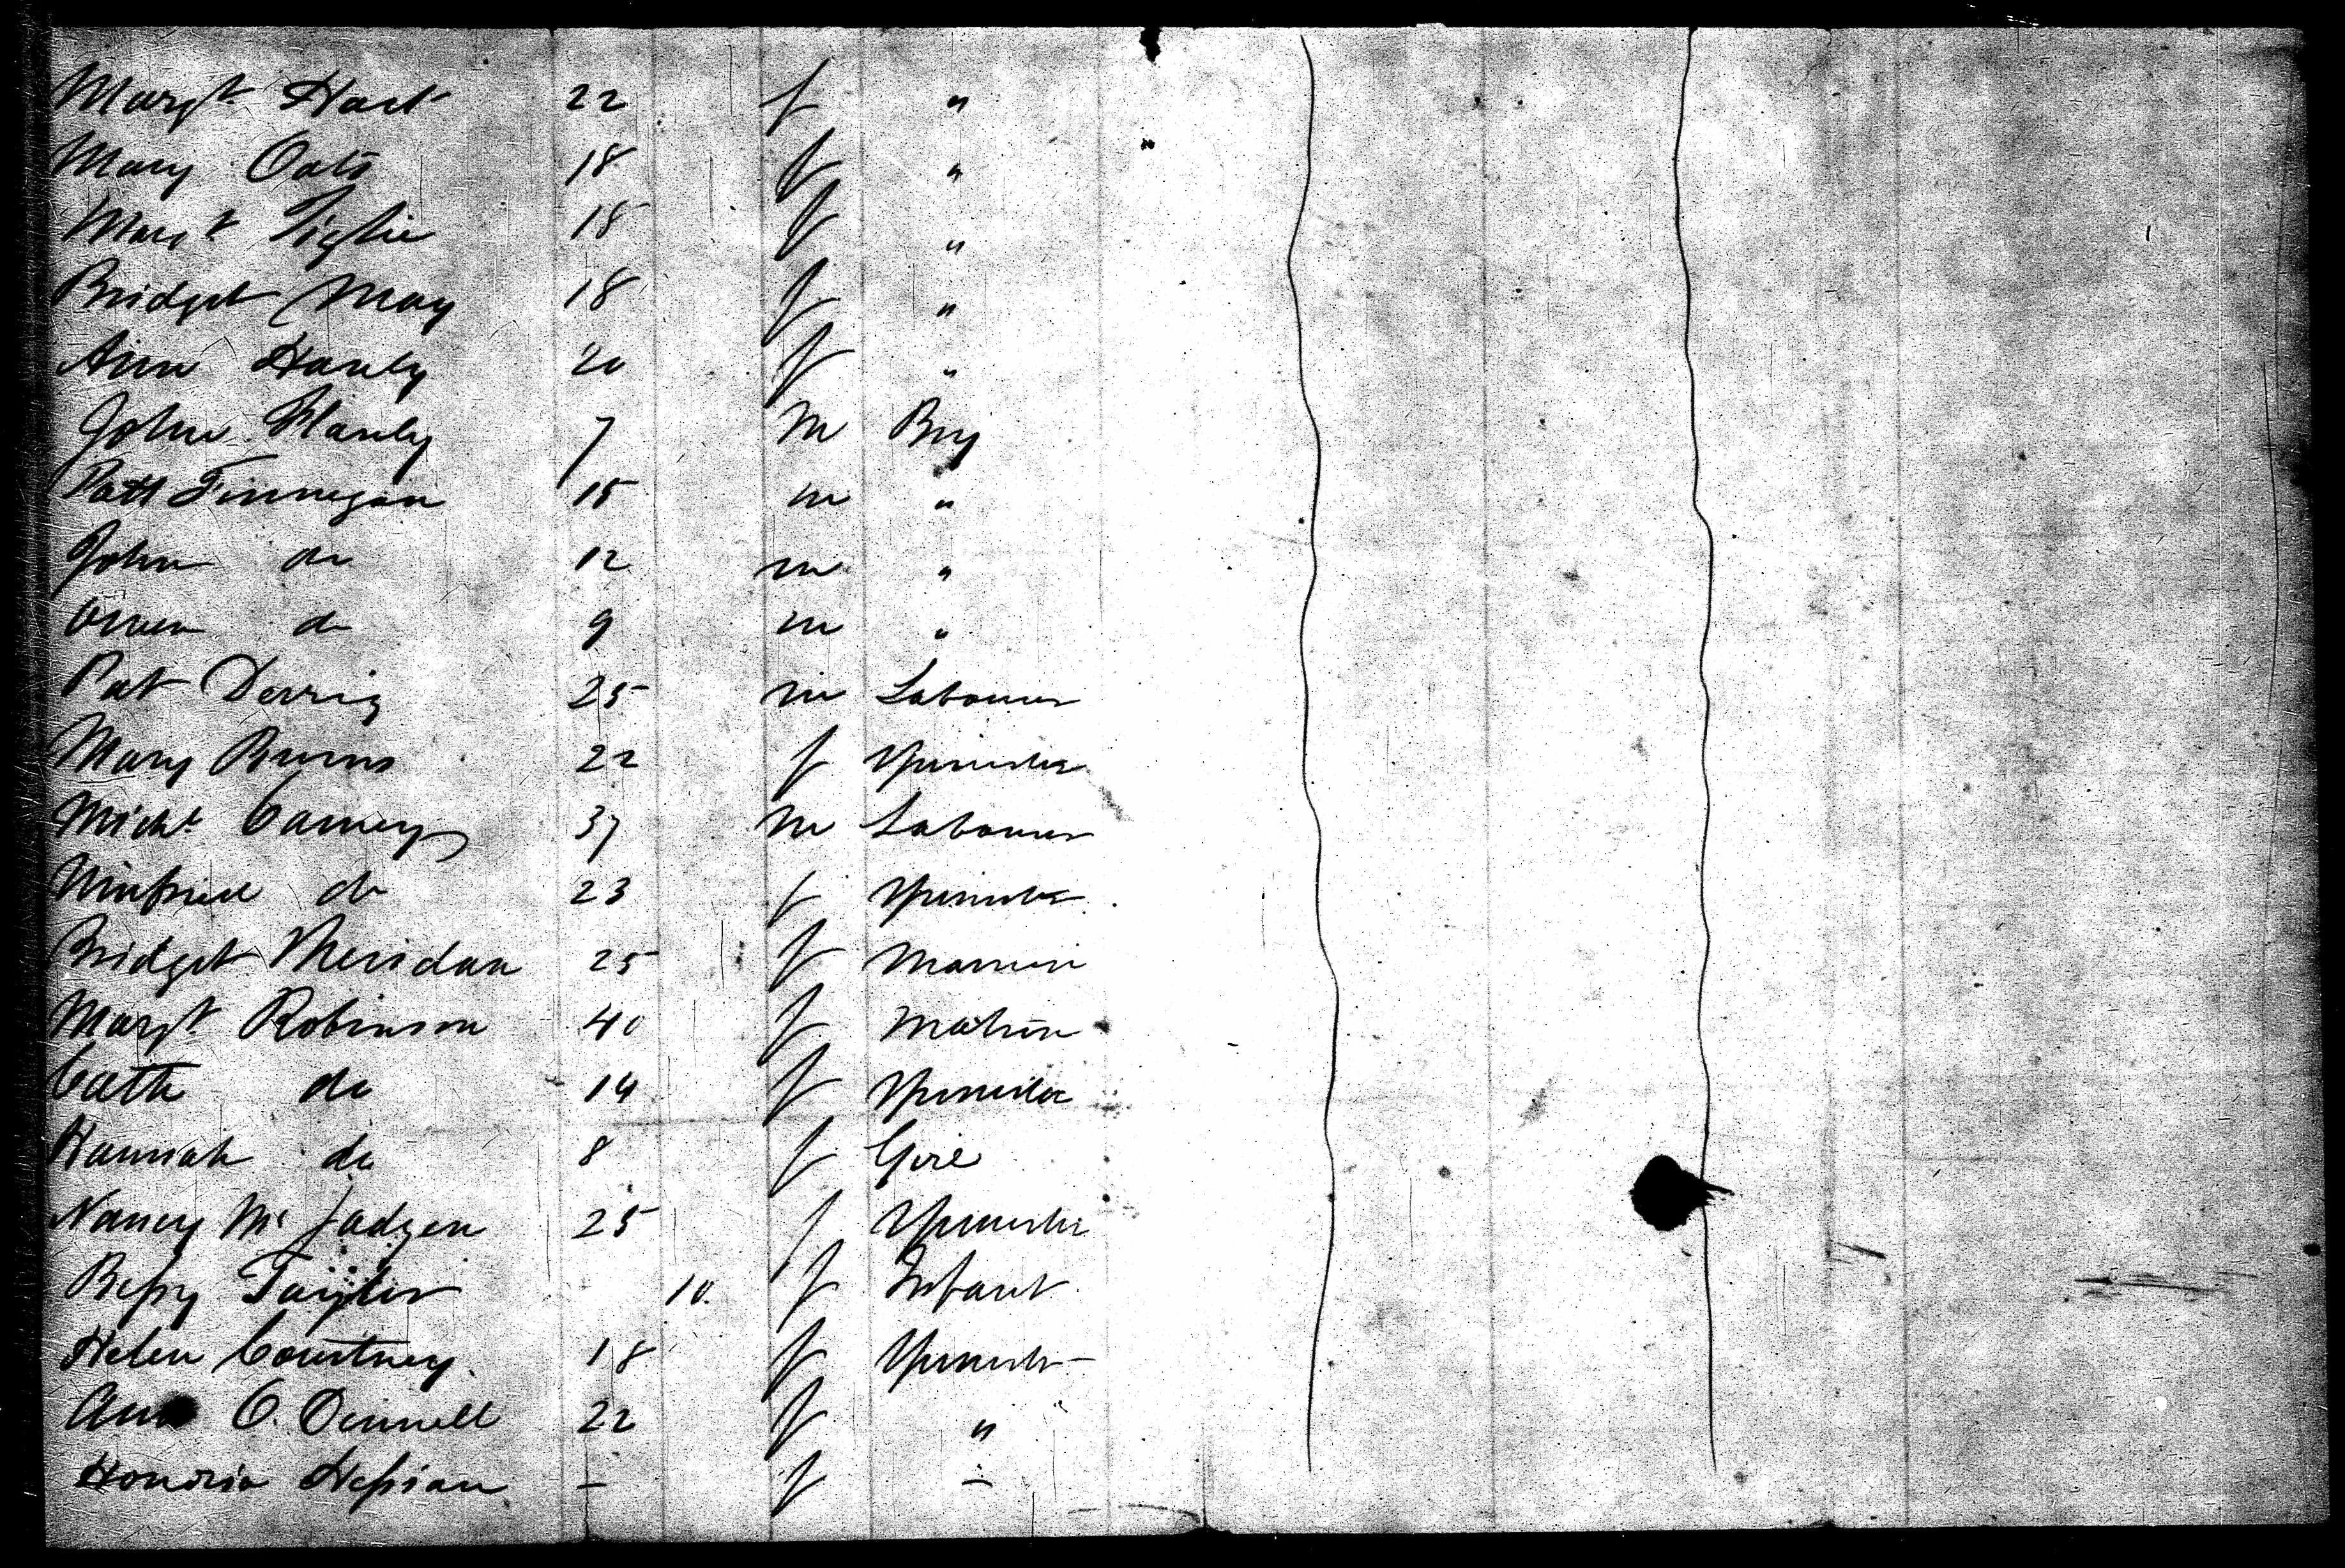 Margt Hart 22 f "
Mary Oats 18 f "
Margt 18 f "
Bridget May 18 f "
Ann Hanly 20 f "
John Hanly 7 m Boy
Patt Finnegan 15 m "
John do 12 m "
Owen do 9 m "
Pat Derrig 25 m Labourer
Mary Burns 22 f Spinster
Michl Carney 37 m Labourer
do 23 f Spinster
Bridget 25 f
Margt Robinson 40 f Matron
Cath do 14 f Spinster
Hannah do 8 f Girl
Nancy Mc 25 f Spinster
Bessy Taylor 10 f Infant
Helen Courtney 18 f Spinster
Ann O. Donnell 22 f "
Honoria Hession – f –